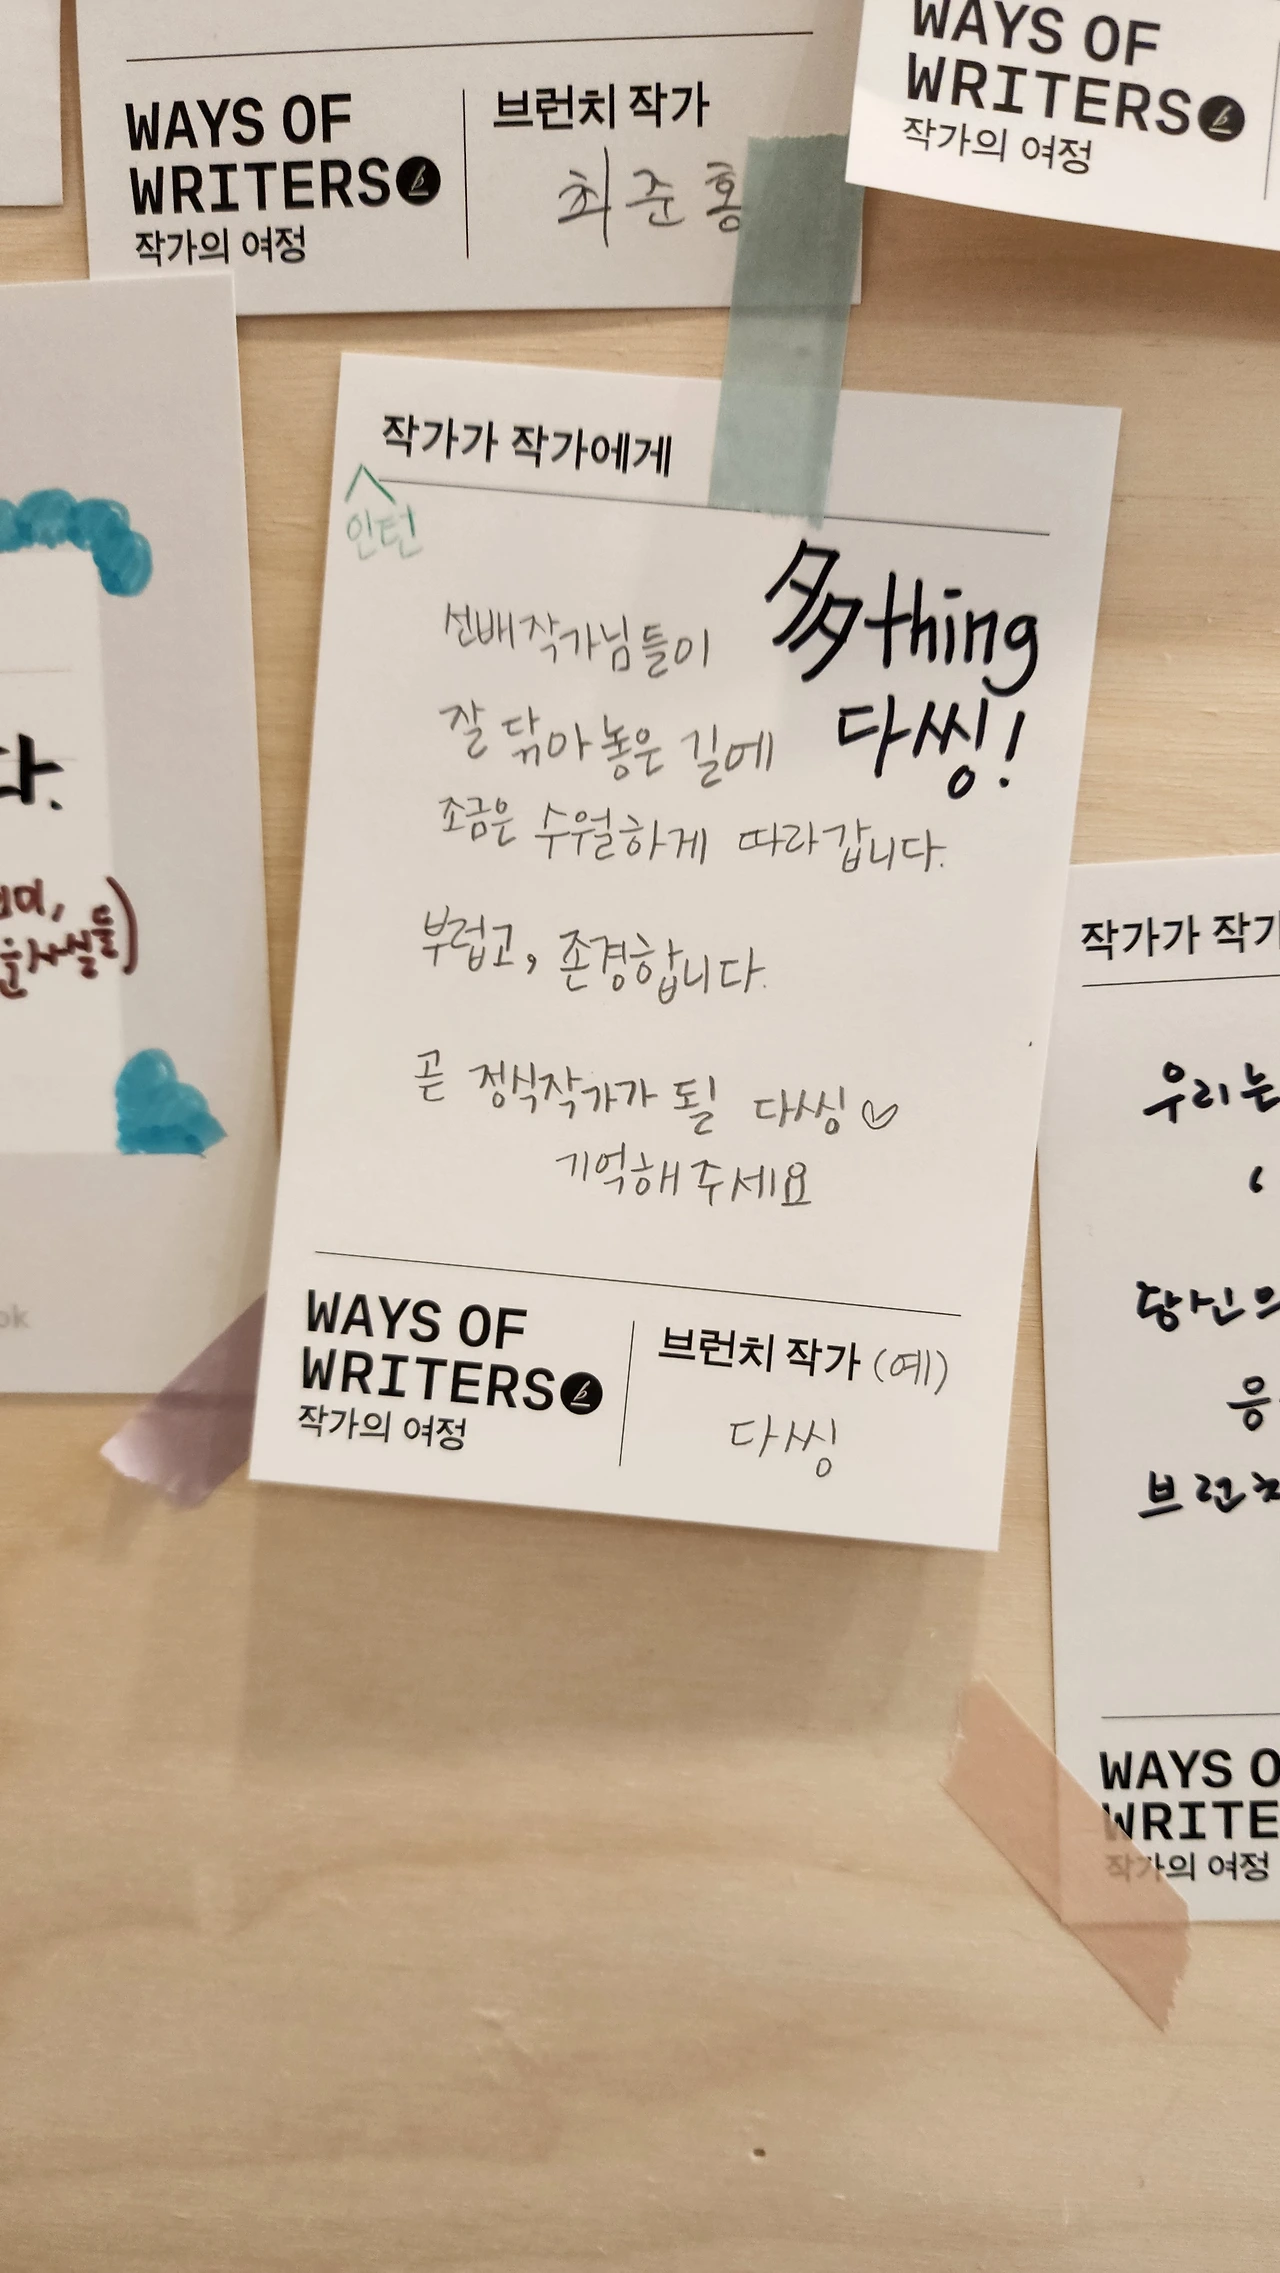 WAYS OF
WRITERS
작가의 여정
브런치 작가
최준홍
WAYS OF
WRITERS
작가의 여정
작가가 작가에게
인턴
多thing
다씽!
선배작가님들이
잘 닦아놓은 길에
조금은 수월하게 따라갑니다.
부럽고, 존경합니다.
곧 정식작가가 될 다씽♡
기억해주세요
WAYS OF
WRITERS
작가의 여정
브런치 작가 (예)
다씽
다.
작가가 작가
우리는
당신의
응
브런치
WAYS O
WRITE
작가의 여정